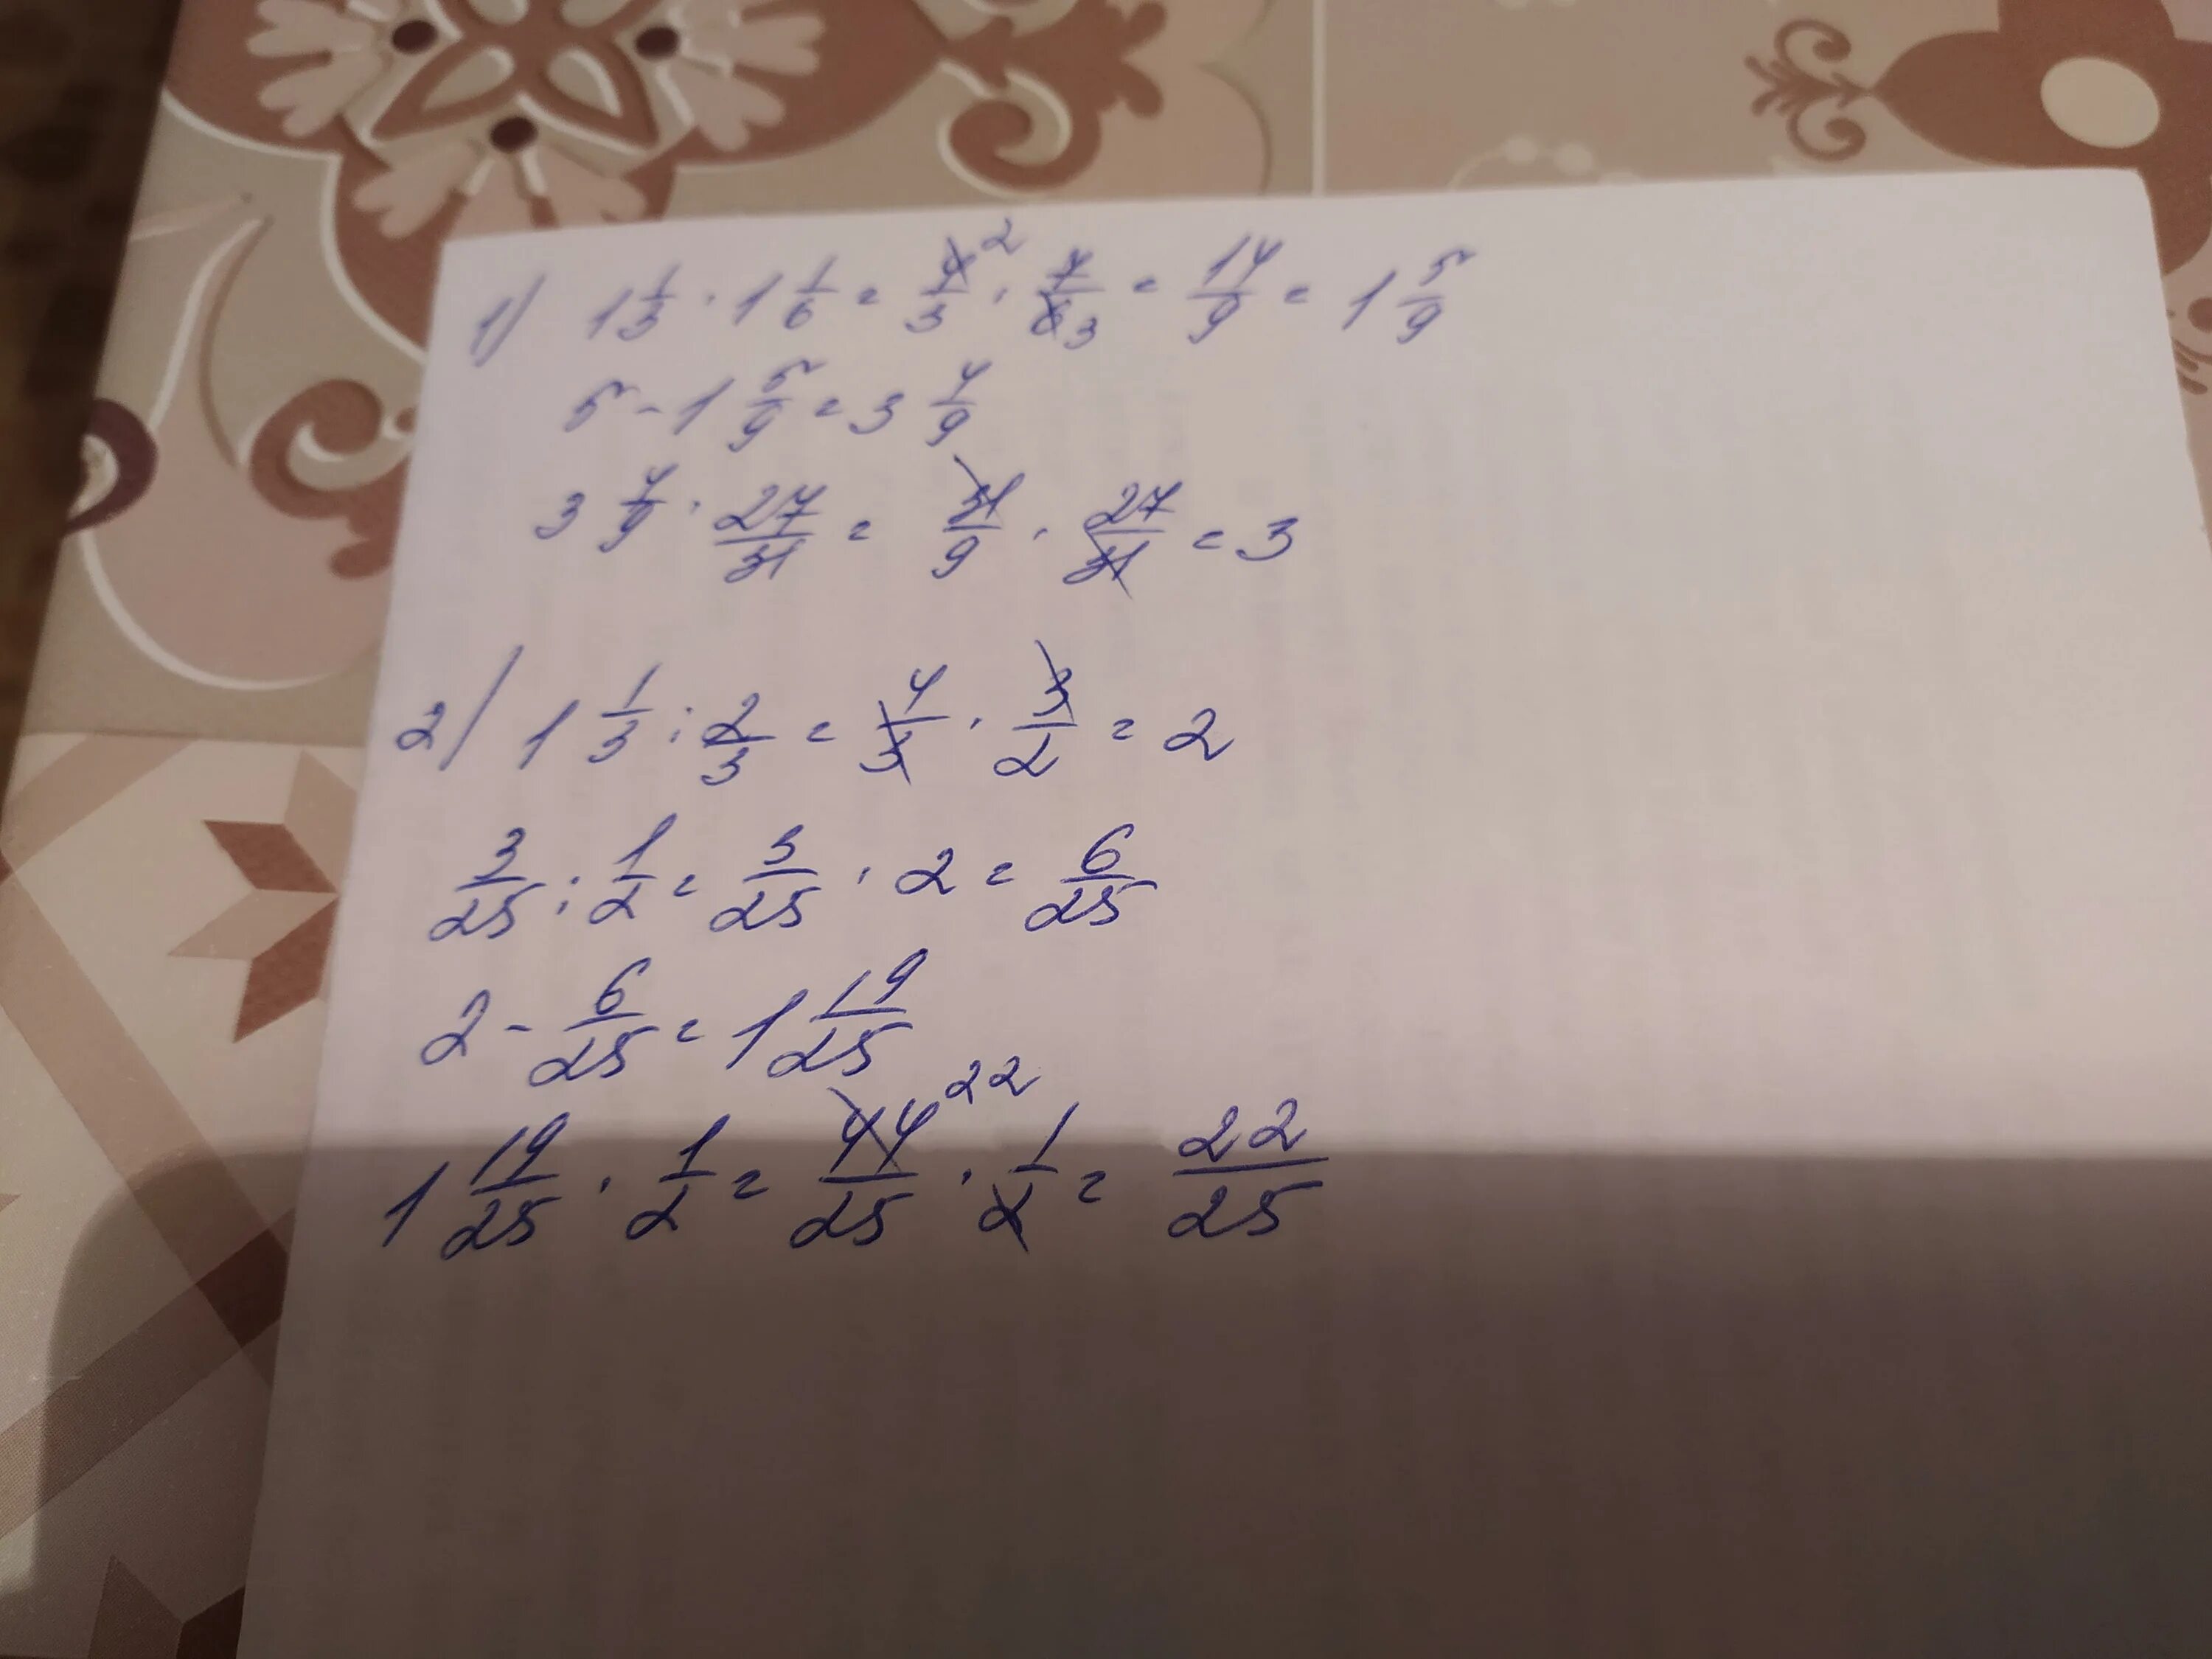 1) 1 1/3 · 1 1/6 = 4/3 ² · 7/6 ₃ = 14/9 = 1 5/9
5 - 1 5/9 = 3 4/9
3 4/9 · 27/31 = 31/9 · 27/31 = 3
2) 1 1/3 : 2/3 = 4/3 · 3/2 = 2
3/25 : 1/2 = 3/25 · 2 = 6/25
2 - 6/25 = 1 19/25
1 19/25 · 1/2 = 44/25 ²² · 1/2 = 22/25